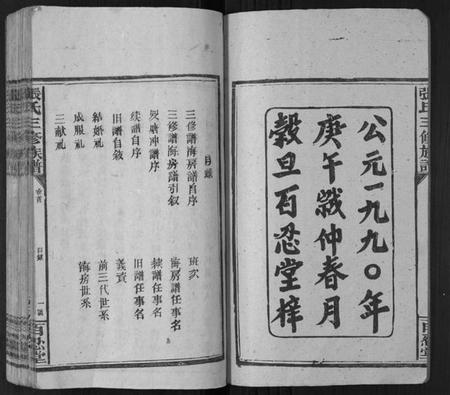 張氏三修族譜
公元一九九〇年
庚午歲仲春月
穀旦百忍堂梓
百忍堂
目錄
三修譜海房譜自序
三修譜海房譜引叙
续譜自序
旧譜自敘
結婚礼
成服礼
三献礼
班次
海房譜任事名
续譜任事名
旧譜任事名
義資
前三代世系
海房世系
張氏三修族譜
卷首
目錄
一
百忍堂